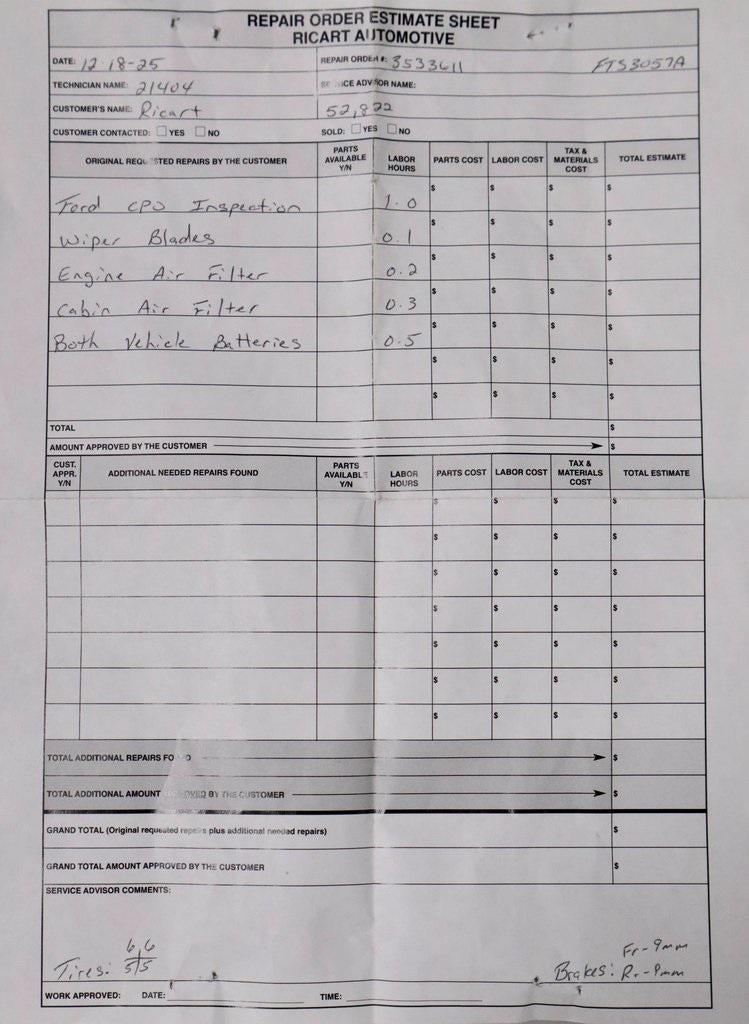 REPAIR ORDER ESTIMATE SHEET
RICART AUTOMOTIVE
DATE: 12-18-25 REPAIR ORDER #: 3533611 FTS3057A
TECHNICIAN NAME: 21404 SERVICE ADVISOR NAME:
CUSTOMER'S NAME: Ricart 52,822
CUSTOMER CONTACTED: ☐ YES ☐ NO SOLD: ☐ YES ☐ NO
ORIGINAL REQUESTED REPAIRS BY THE CUSTOMER PARTS AVAILABLE Y/N LABOR HOURS PARTS COST LABOR COST TAX & MATERIALS COST TOTAL ESTIMATE
Ford CPO Inspection 1.0 $ $ $ $
Wiper Blades 0.1 $ $ $ $
Engine Air Filter 0.2 $ $ $ $
Cabin Air Filter 0.3 $ $ $ $
Both Vehicle Batteries 0.5 $ $ $ $
$ $ $ $
$ $ $ $
TOTAL $
AMOUNT APPROVED BY THE CUSTOMER $
CUST. APPR. Y/N ADDITIONAL NEEDED REPAIRS FOUND PARTS AVAILABLE Y/N LABOR HOURS PARTS COST LABOR COST TAX & MATERIALS COST TOTAL ESTIMATE
$ $ $ $
$ $ $ $
$ $ $ $
$ $ $ $
$ $ $ $
$ $ $ $
$ $ $ $
TOTAL ADDITIONAL REPAIRS FOUND $
TOTAL ADDITIONAL AMOUNT APPROVED BY THE CUSTOMER $
GRAND TOTAL (Original requested repairs plus additional needed repairs) $
GRAND TOTAL AMOUNT APPROVED BY THE CUSTOMER $
SERVICE ADVISOR COMMENTS:
6 6 Fr-9mm
Tires: 5 5 Brakes: Rr-9mm
WORK APPROVED: DATE: TIME: